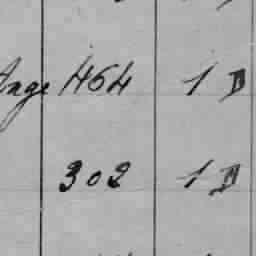 Ange 464 1 D
302 1 D